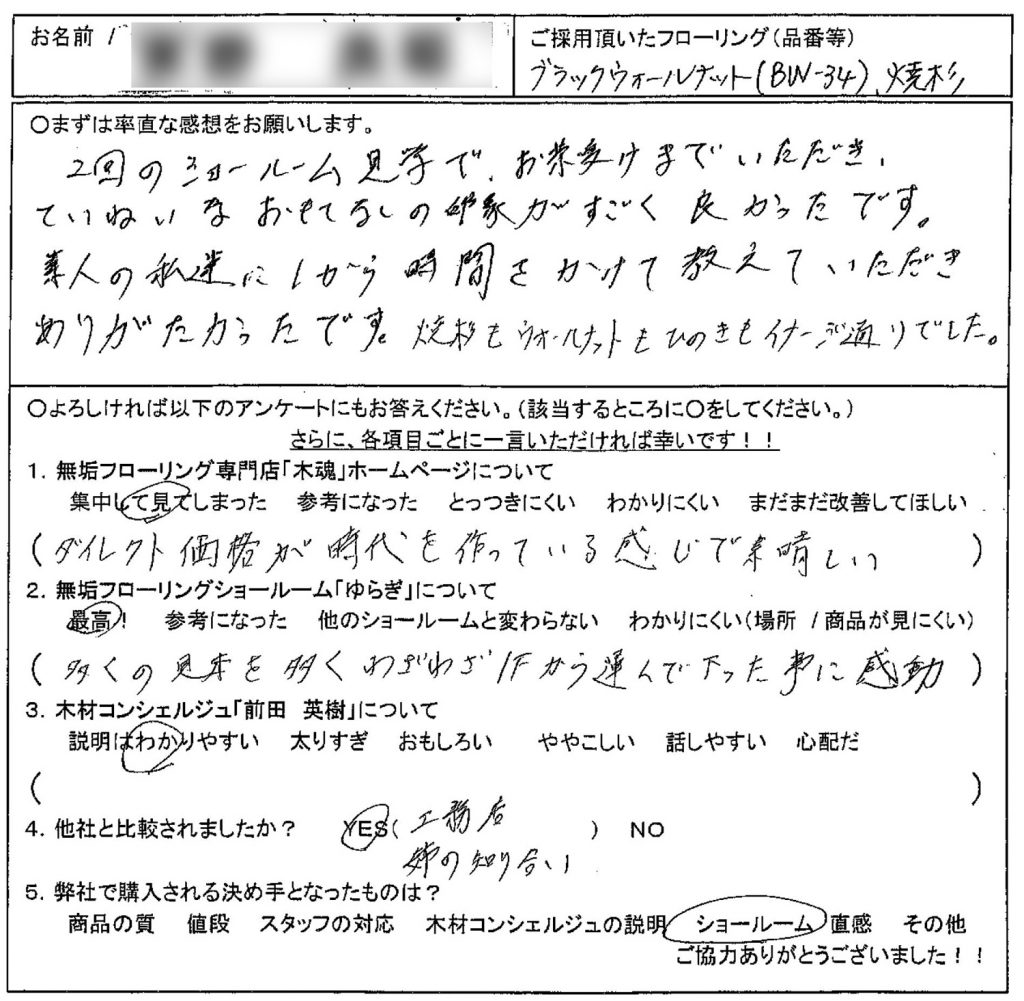 お名前 /
ご採用頂いたフローリング(品番等)
ブラックウォールナット(BW-34)、焼杉
○まずは率直な感想をお願いします。
2回のショールーム見学で、お茶受けまでいただき、
ていねいなおもてなしの印象がすごく良かったです。
素人の私達に1から時間をかけて教えていただき
ありがたかったです。焼杉もウォールナットもひのきもイメージ通りでした。
○よろしければ以下のアンケートにもお答えください。(該当するところに○をしてください。)
さらに、各項目ごとに一言いただければ幸いです!!
1. 無垢フローリング専門店「木魂」ホームページについて
集中して見てしまった 参考になった とっつきにくい わかりにくい まだまだ改善してほしい
(ダイレクト価格が時代を作っている感じで素晴しい)
2. 無垢フローリングショールーム「ゆらぎ」について
最高! 参考になった 他のショールームと変わらない わかりにくい(場所 / 商品が見にくい)
(多くの見本を多くわざわざ1Fから運んで下った事に感動)
3. 木材コンシェルジュ「前田 英樹」について
説明はわかりやすい 太りすぎ おもしろい ややこしい 話しやすい 心配だ
( )
4. 他社と比較されましたか? YES(工務店 ) NO
姉の知り合い
5. 弊社で購入される決め手となったものは?
商品の質 値段 スタッフの対応 木材コンシェルジュの説明 ショールーム 直感 その他
ご協力ありがとうございました!!